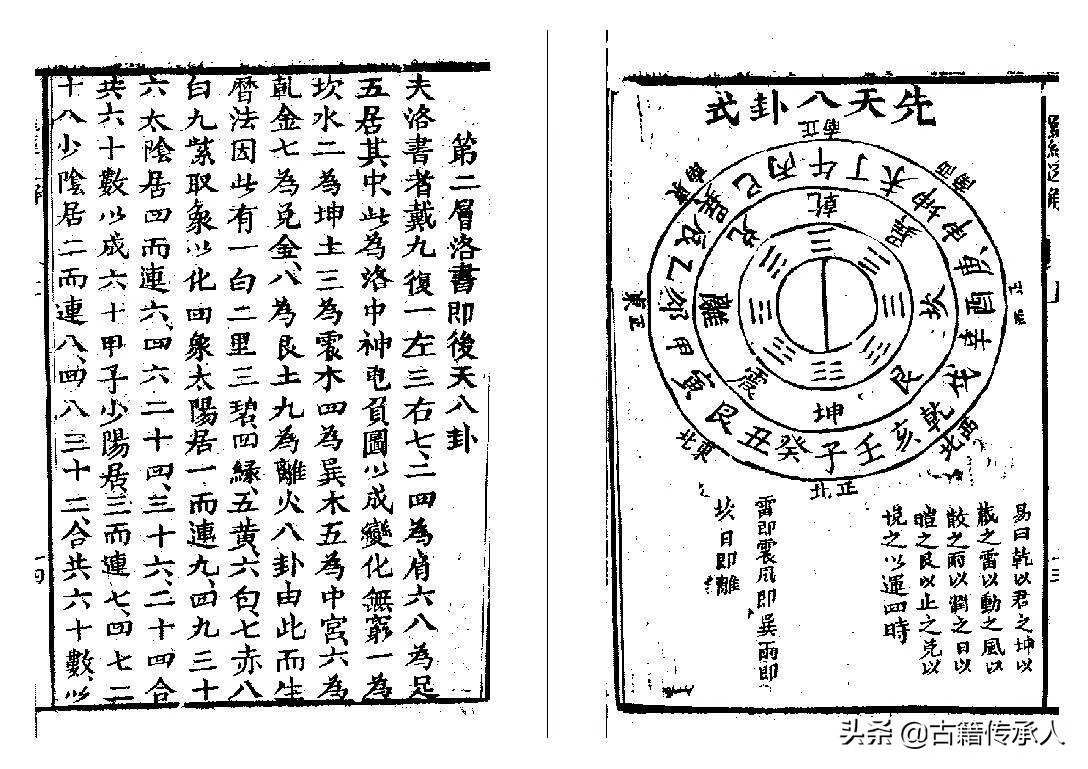 先天八卦式
正南
午丁未坤申庚酉辛戌乾亥壬子癸丑艮寅甲卯乙辰巽巳丙
乾巽坎艮坤震離兌
正西
西北
正北
東北
正東
東南
易曰乾以君之坤以
藏之雷以動之風以
散之雨以潤之日以
暄之艮以止之兌以
悅之以運四時
雷即震風即巽雨即
坎日即離
第二層洛書即後天八卦
夫洛書者戴九復一左三右七、二四為肩六八為足
五居其中此為洛中神龟負圖以成變化無窮一為
坎水二為坤土三為震木四為巽木五為中宮六為
乹金七為兌金、八為艮土九為離火八卦由此而生
曆法因此有一白二黑三碧、四緣、五黃、六白、七赤八
白九紫取象以化四象太陽居一而連九、四九三十
六太陰居四而連六、四六二十四、三十六、二十四合
共六十數以成六十甲子少陽居三而連七、四七二
十八少陰居二而連八、四八三十二、合共六十數、以
头条 @古籍传承人